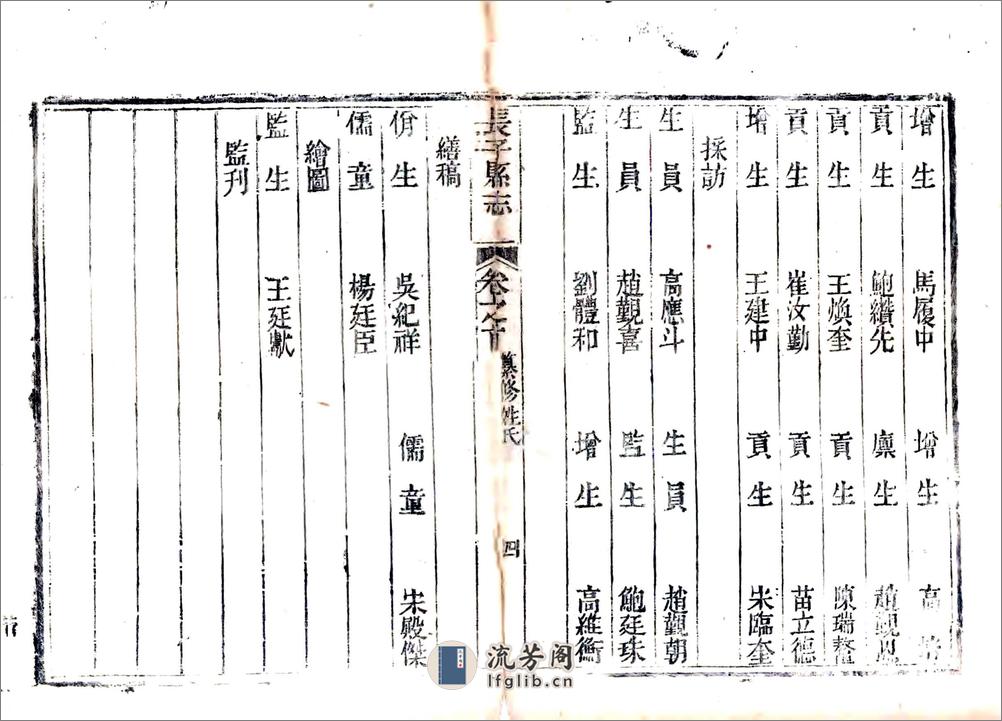 增生 馬履中 增生 高
貢生 鮑纘先 廩生 趙觀
貢生 王煥奎 貢生 陳瑞
貢生 崔汝勤 貢生 苗立德
增生 王建中 貢生 朱臨奎
採訪
生員 高應斗 生員 趙觀朝
生員 趙觀喜 監生 鮑廷珠
監生 劉體和 增生 高維衡
長子縣志 卷之 纂修姓氏 四
繕稿
佾生 吳紀祥 儒童 宋殿傑
儒童 楊廷臣
繪圖
監生 王廷獻
監刊
流芳阁
lfglib.cn